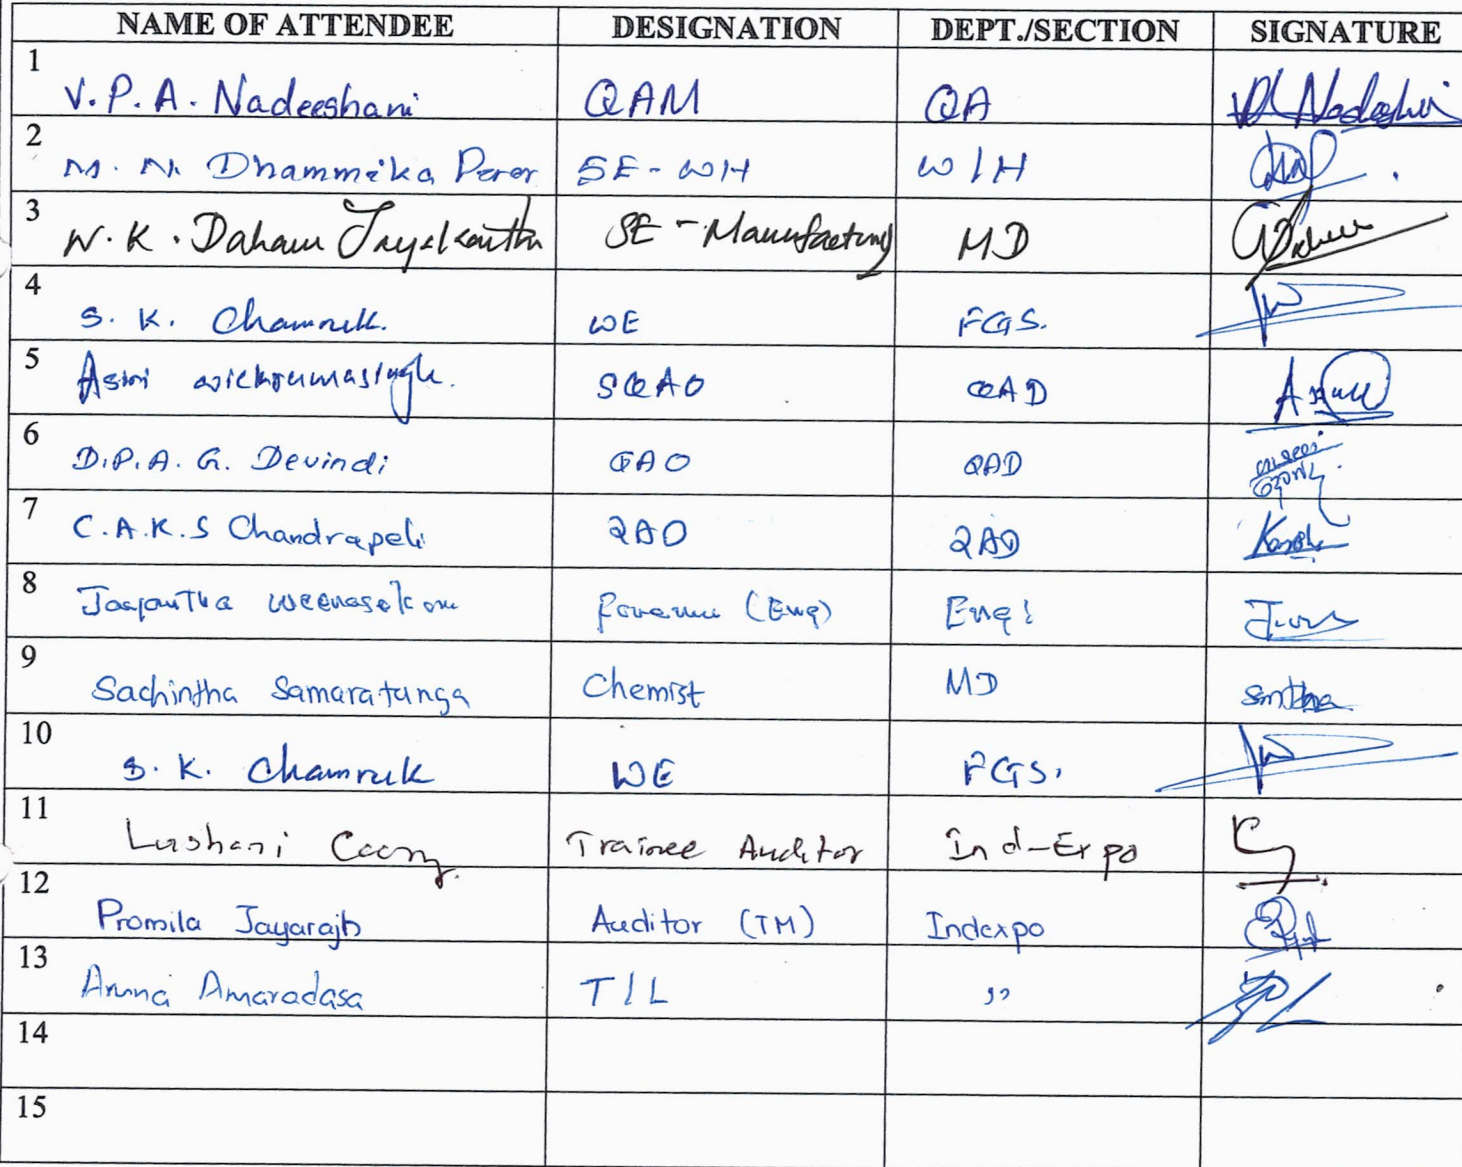 NAME OF ATTENDEE DESIGNATION DEPT./SECTION SIGNATURE
1 V.P.A. Nadeeshani QAM QA
2 M. N. Dhammika Perer SE-WH W/H
3 W.K. Daham Jayakantha SE-Manufacturing MD
4 S. K. Chamruk. WE FGS.
5 Asiri wickrumasingh. SQAO QAD
6 D.P.A.G. Devindi QAO QAD
7 C.A.K.S Chandrapeli QAO QAD
8 (Eng)
9 Sachintha Samaratunga Chemist MD
10 S. K. Chamruk WE FGS.
11 Lushani Trainee Auditor Ind-Expo
12 Promila Jayarajh Auditor (TM) Indexpo
13 Aruna Amaradasa T/L ,,
14
15